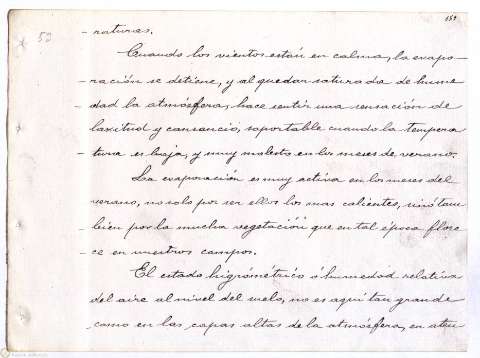 53
159
raturas.
Cuando los vientos están en calma, la evapo-
ración se detiene, y al quedar saturada de hume
dad la atmósfera, hace sentir una sensación de
laxitud y cansancio, soportable cuando la tempera
tura es baja, y muy molesto en los meses de verano.
La evaporación es muy activa en los meses del
verano, no solo por ser ellos los mas calientes, sinó tam
bien por la mucha vegetación que en tal época flore
ce en nuestros campos.
El estado higrométrico ó humedad relativa
del aire al nivel del suelo, no es aquí tan grande
como en las capas altas de la atmósfera, en aten